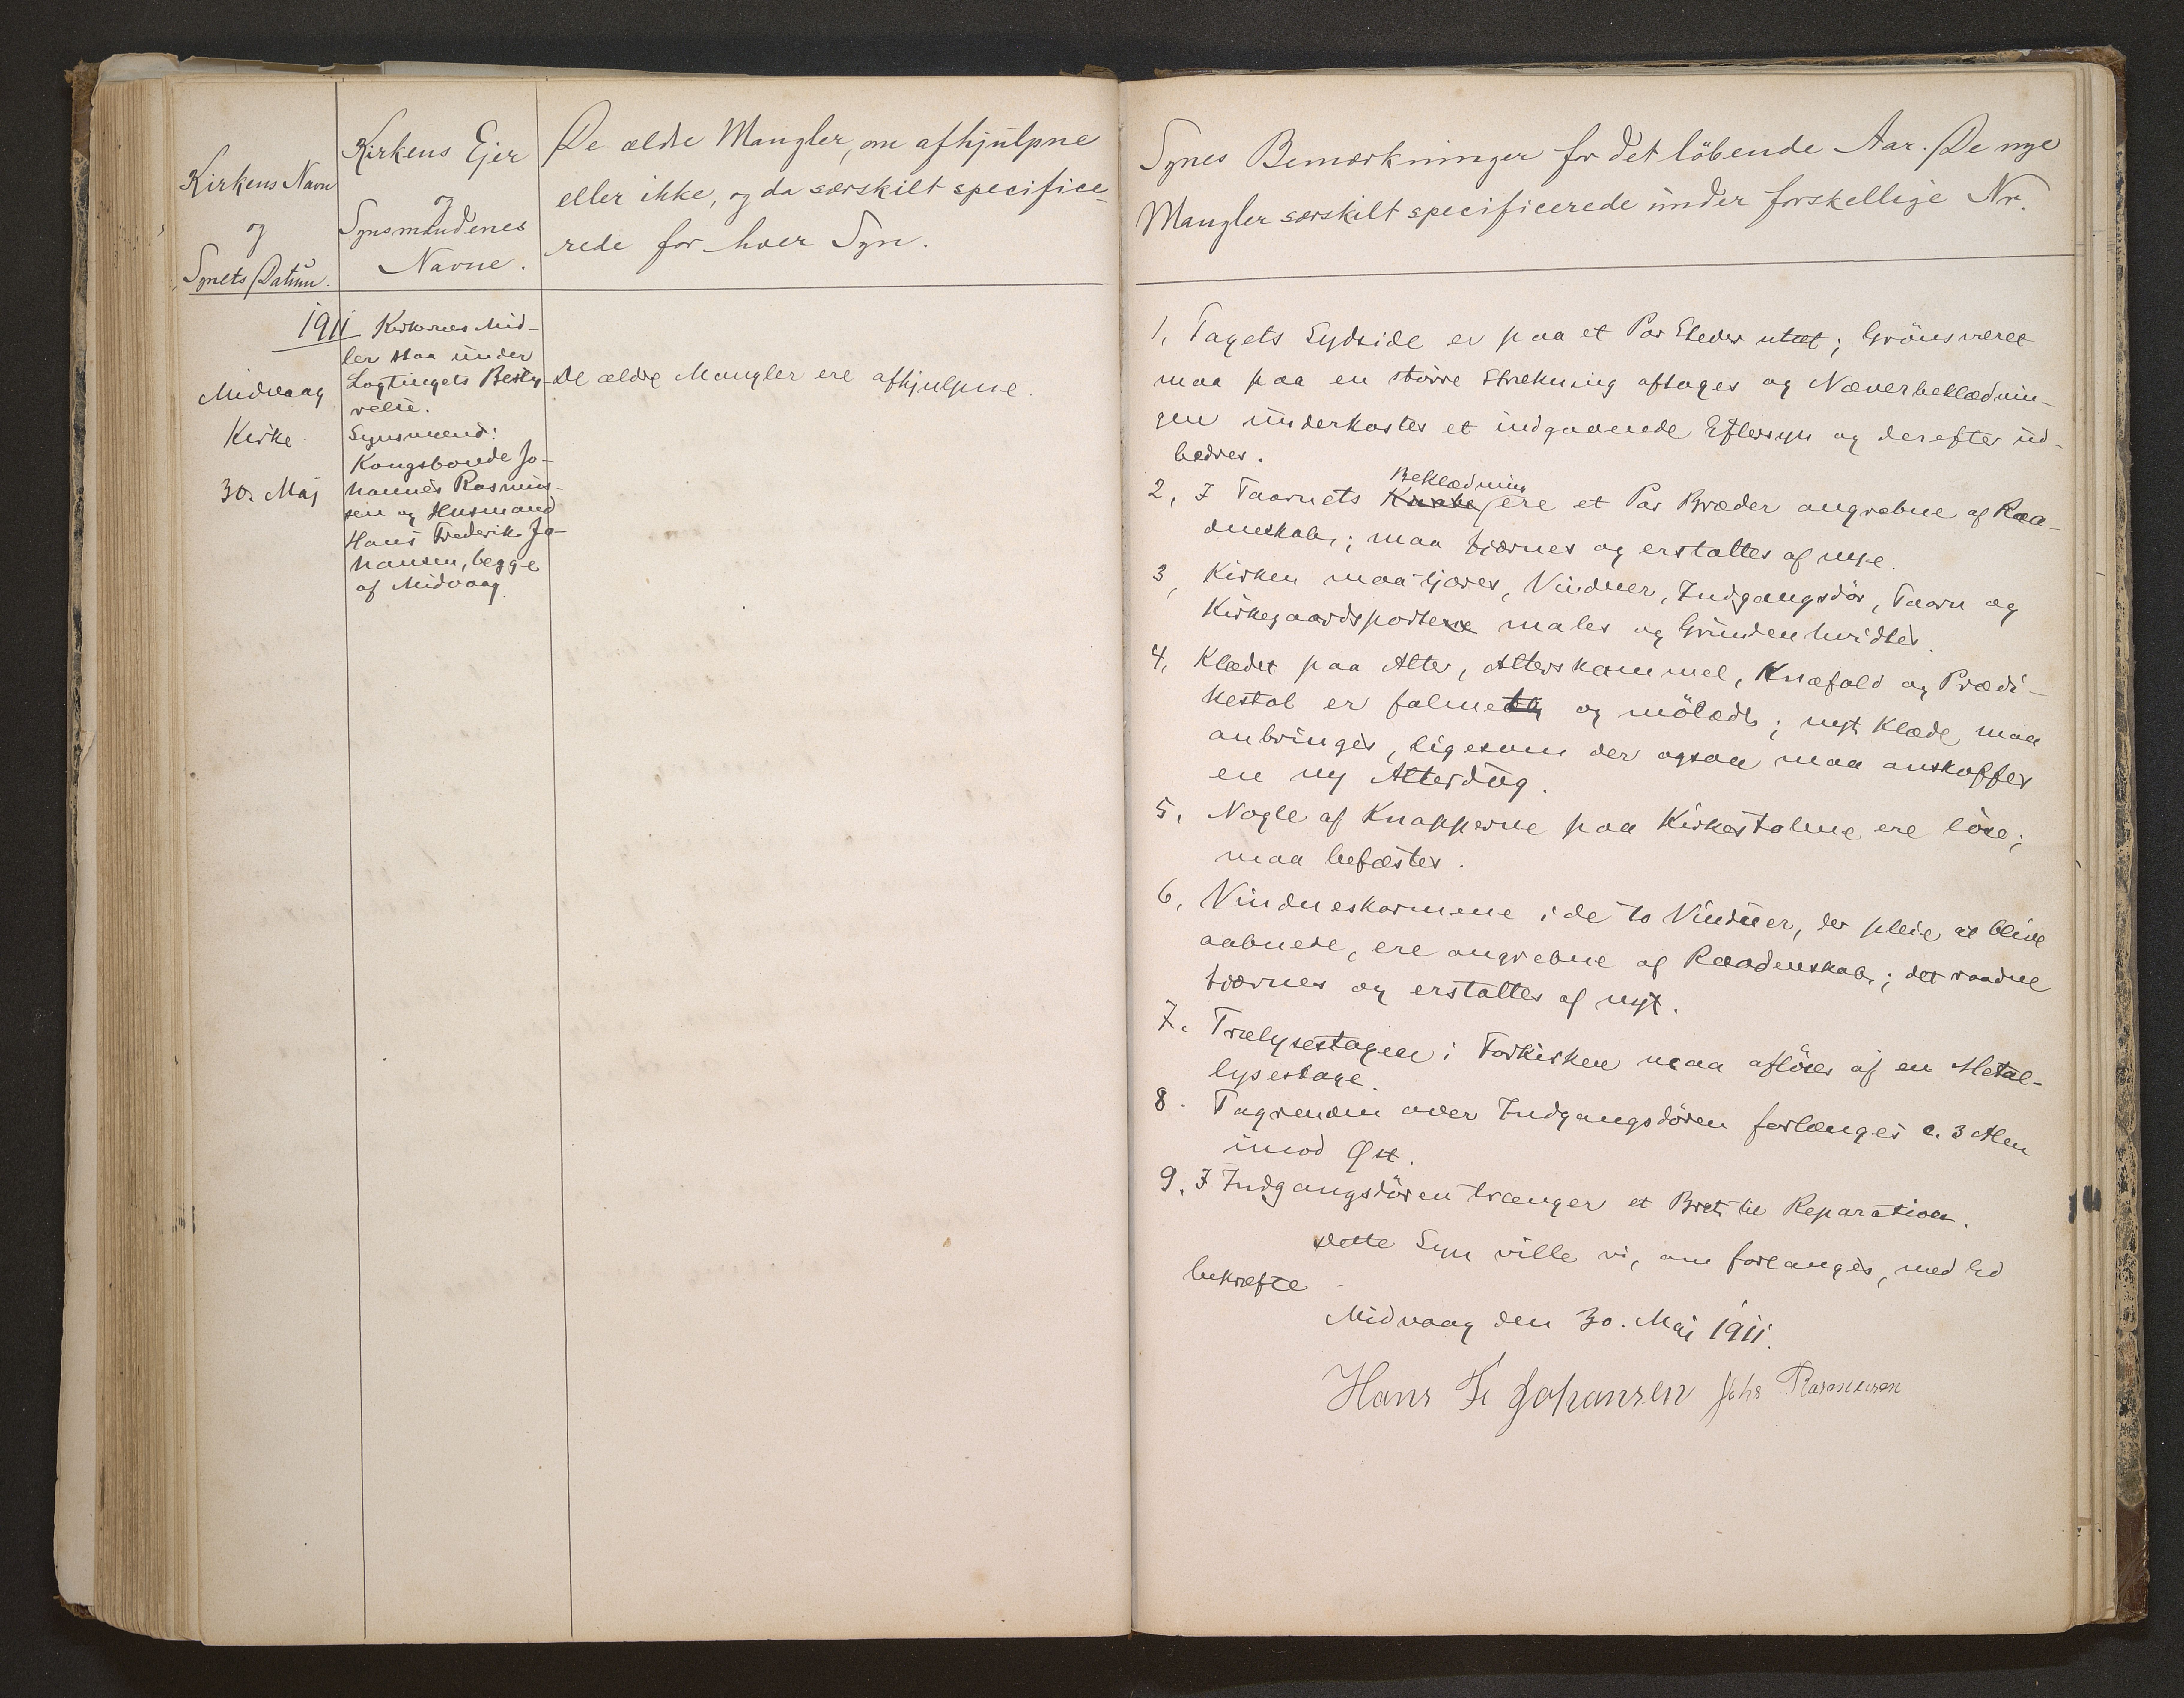 Kirkens Navn
og
Synets Datum.
Kirkens Ejer
og
Synsmændenes
Navne.
De ældre Mangler, om afhjulpne
eller ikke, og da særskilt specifice-
rede for hver Syn.
1911
Midvaag
Kirke
30. Maj
Kirkernes Mid-
ler staa under
Lagtingets Besty-
relse.
Synsmænd:
Kongsbonde Jo-
hannes Rasmus-
sen og Husmand
Hans Frederik Jo-
hansen, begge
af Midvaag
De ældre Mangler ere afhjulpne.
Synes Bemærkninger for det löbende Aar. De nye
Mangler særskilt specificerede under forskellige Nr.
1, Tagets Sydside er paa et Par Steder utæt; Grönsværet
maa paa en större Strækning aftages og Næverbeklædnin-
gen underkastes et indgaaende Eftersyn og derefter ud-
bedres.
Beklædning
2, I Taarnets ere et Par Bræder angrebne af Raa-
denskab; maa fjærnes og erstattes af nye.
3, Kirken maa tjæres, Vinduer, Indgangsdör, Taarn og
Kirkegaardsporten males og Grunden hvidtes.
4, Klædet paa Alter, Alterskammel, Knæfald og Prædi-
kestol er falmet og mölædt; nyt Klæde maa
anbringes, ligesom der ogsaa maa anskaffes
en ny Alterdug.
5, Nogle af Knapperne paa Kirkestolene ere löse;
maa befæstes.
6, Vindueskarmene i de to Vinduer, der pleie at blive
aabnede, ere angrebne af Raadenskab; det raadne
fjærnes og erstattes af nyt.
7. Trælysestagen i Forkirken maa aflöses af en Metal-
lysestage.
8. Tagrenden over Indgangsdören forlænges c. 3 Alen
imod Øst.
9. I Indgangsdören trænger et Bræt til Reparation.
Dette Syn ville vi, om forlanges, med Ed
bekræfte
Midvaag den 30. Maj 1911.
Hans Fr Johansen Johs Rasmussen